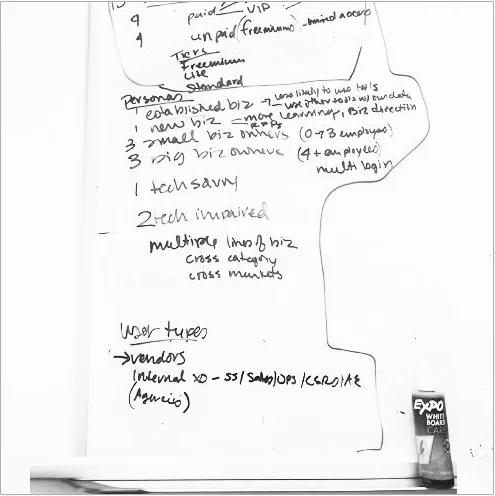 4 paid VIP
4 unpaid (freemiums) - limited access
Tiers
Freemium
Lite
Standard
Personas
1 established biz → use likely to use tools
- use other tools w/ our data
1 new biz - more learnings, Biz direction
3 small biz owners (0→3 employees)
3 big biz owners (4+ employees)
multi login
1 tech savvy
2 tech impaired
multiple lines of biz
cross category
cross markets
User types
→ vendors
Internal XO - SS/Sales/OPS/CSRS/AE
(Agencies)
EXPO
WHITE
BOARD
CARE